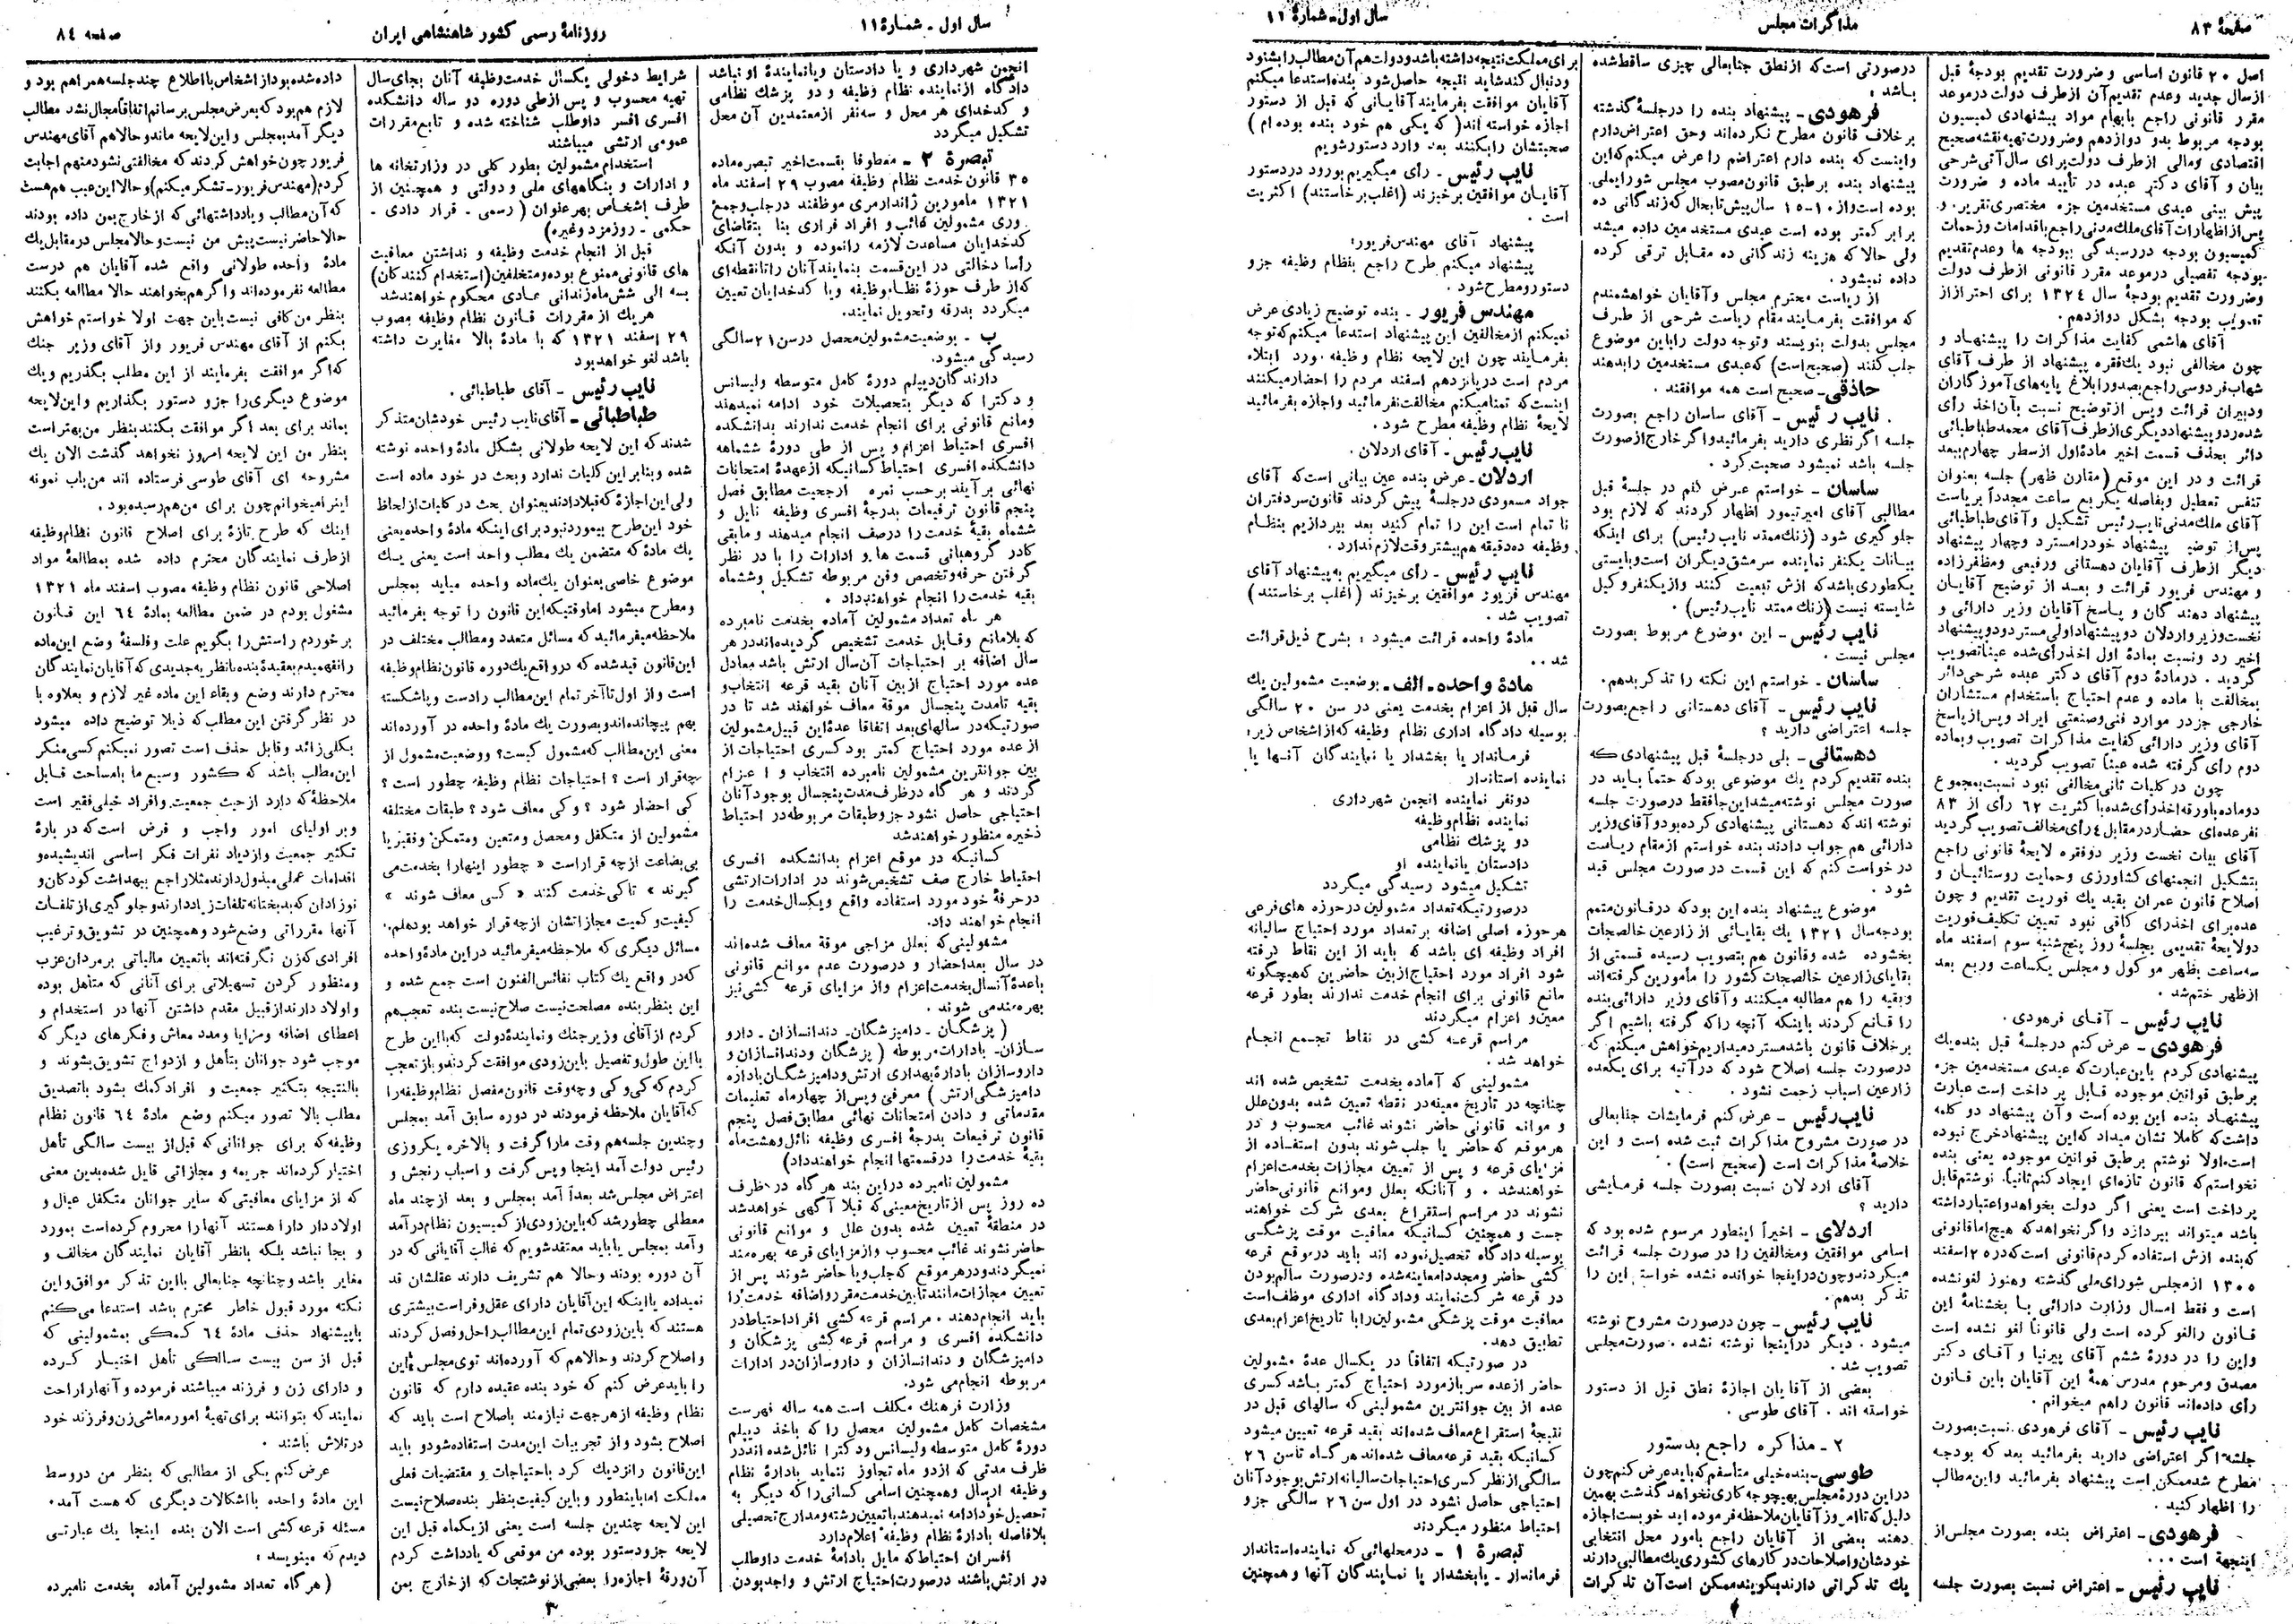 صفحهٔ ۸۳
مذاکرات مجلس
سال اول ـ شمارهٔ ۱۱
اصل ۲۰ قانون اساسی و ضرورت تقدیم بودجهٔ قبل
ازسال جدید وعدم تقدیم‌آن ازطرف دولت درموعد
مقرر قانونی راجع بابهام مواد پیشنهادی کمیسیون
بودجه مربوط بدو دوازدهم وضرورت تهیه نقشه صحیح
اقتصادی ومالی ازطرف دولت برای سال آتی شرحی
بیان و آقای دکتر عبده در تأیید ماده و ضرورت
پیش بینی عیدی مستخدمین جزء مختصری تقریر و
پس ازاظهارات آقای ملك‌مدنی راجع باقدامات وزحمات
کمیسیون بودجه دررسیدگی ببودجه ها وعدم‌تقدیم
بودجه تفصیلی درموعد مقرر قانونی ازطرف دولت
وضرورت تقدیم بودجهٔ سال ۱۳۲٤ برای احترازاز
تصویب بودجه بشکل دوازدهم.
آقای هاشمی کفایت مذاکرات را پیشنهاد و
چون مخالفی نبود یك‌فقره پیشنهاد از طرف آقای
شهاب‌فردوسی راجع‌بصدورابلاغ پایه‌های‌آموزگاران
ودبیران قرائت وپس ازتوضیح نسبت بآن‌اخذ رأی
شده‌ردوپیشنهاددیگری‌ازطرف آقای محمدطباطبائی
دائر بحذف قسمت اخیر مادهٔ‌اول ازسطر چهارم‌ببعد
قرائت و در این موقع (مقارن ظهر) جلسه بعنوان
تنفس تعطیل وبفاصله یکربع ساعت مجدداً بریاست
آقای ملك‌مدنی‌نایب‌رئیس تشکیل وآقای‌طباطبائی
پس‌از توضیح پیشنهاد خودرامسترد وچهار پیشنهاد
دیگر ازطرف آقایان دهستانی ورفیعی ومظفرزاده
و مهندس فریور قرائت و بعد از توضیح آقایان
پیشنهاد دهندگان و پاسخ آقایان وزیر دارائی و
نخست‌وزیر واردلان دوپیشنهاداولی‌مسترد‌ودوپیشنهاد
اخیر رد ونسبت بمادهٔ اول اخذرأی‌شده عیناً‌تصویب
گردید . درمادهٔ دوم آقای دکتر عبده شرحی‌دائر
بمخالفت با ماده و عدم احتیاج باستخدام مستشاران
خارجی جزدر موارد فنی‌وصنعتی ایراد وپس‌ازپاسخ
آقای وزیر دارائی کفایت مذاکرات تصویب وبماده
دوم رأی گرفته شده عیناً تصویب گردید .
چون در کلیات ثانی‌مخالفی نبود نسبت‌بمجموع
دوماده‌باورقه‌اخذرأی‌شده‌با کثریت ٦۲ رأی از ۸۳
نفرعده‌ای حضاردرمقابل ٤رأی‌مخالف‌تصویب‌گردید
آقای بیات نخست وزیر دوفقره لایحهٔ قانونی راجع
بتشکیل انجمنهای کشاورزی وحمایت روستائیان و
اصلاح قانون عمران بقید یك فوریت تقدیم و چون
عده‌برای اخذرای کافی نبود تعیین تکلیف‌فوریت
دولایحهٔ تقدیمی بجلسهٔ روز پنجشنبه سوم اسفند ماه
سه‌ساعت بظهر موکول و مجلس یکساعت وربع بعد
ازظهر ختم‌شد .
نایب رئیس ـ آقای فرهودی .
فرهودی ـ عرض کنم درجلسهٔ قبل بنده‌یك
پیشنهادی کردم باین‌عبارت‌که عیدی مستخدمین جزء
برطبق قوانین موجوده قابل پر داخت است عبارت
پیشنهاد بنده این بوده‌است وآن پیشنهاد دو کلمه
داشت‌که کاملا نشان میداد که‌این پیشنهادخرج نبوده
است،اولا نوشتم برطبق قوانین موجوده یعنی بنده
نخواستم‌که قانون تازه‌ای ایجاد کنم‌ثانیاً. نوشتم‌قابل
پرداخت است یعنی اگر دولت بخواهدواعتبارداشته
باشد میتواند بپردازد واگرنخواهدکه هیچ‌اماقانونی
که‌بنده ازش استفاده کردم‌قانونی است‌که‌در۲۵اسفند
۱۳۰۵ ازمجلس شورای‌ملی گذشته وهنوز لغونشده
است و فقط امسال وزارت دارائی با بخشنامهٔ این
قانون رالغو کرده است ولی قانوناً لغو نشده است
واین را در دورهٔ ششم آقای پیرنیا و آقای دکتر
مصدق ومرحوم مدرس همهٔ این آقایان باین قانون
رأی داده‌اند قانون راهم میخوانم .
نایب رئیس ـ آقای فرهودی نسبت‌بصورت
جلسهٔ‌اگر اعتراضی دارید بفرمائید بعد که بودجه
مطرح شدممکن است پیشنهاد بفرمائید واین‌مطالب
را اظهار کنید .
فرهودی ـ اعتراض بنده بصورت مجلس‌از
اینجهة است ۰۰۰
نایب رئیس ـ اعتراض نسبت بصورت جلسه
درصورتی است‌که ازنطق جنابعالی چیزی ساقط‌شده
باشد .
فرهودی ـ پیشنهاد بنده را درجلسهٔ گذشته
برخلاف قانون مطرح نکرده‌اند وحق اعتراض‌دارم
واینست‌که بنده دارم اعتراضم را عرض میکنم‌که‌این
پیشنهاد بنده برطبق قانون‌مصوب مجلس شورایملی.
بوده است‌واز ۱۰ـ۱۵ سال‌پیش تابحال که‌زندگانی ده
برابر کمتر بوده است عیدی مستخدمین داده میشد
ولی حالاکه هزینه زندگانی ده مقابل ترقی کرده
داده نمیشود .
از ریاست محترم مجلس وآقایان خواهشمندم
که موافقت بفرمایند مقام ریاست شرحی از طرف
مجلس بدولت بنویسند وتوجه دولت راباین موضوع
جلب کنند (صحیح‌است) که‌عیدی مستخدمین رابدهند
حاذقی ـ صحیح است همه موافقند .
نایب رئیس ـ آقای ساسان راجع بصورت
جلسه اگرنظری دارید بفرمائیدواگرخارج‌ازصورت
جلسه باشد نمیشود صحبت‌کرد .
ساسان ـ خواستم عرض کنم در جلسهٔ قبل
مطالبی آقای امیرتیمور اظهار کردند که لازم بود
جلوگیری شود (زنك‌ممتد نایب‌رئیس) برای اینکه
بیانات یکنفر نماینده سرمشق‌دیگران است‌وبایستی
یکطوری‌باشدکه ازش تبعیت کنند وازیکنفر وکیل
شایسته نیست (زنك ممتد نایب‌رئیس) .
نایب رئیس ـ این موضوع مربوط بصورت
مجلس نیست .
ساسان ـ خواستم این نکته را تذکربدهم.
نایب رئیس ـ آقای دهستانی راجع بصورت
جلسه اعتراضی دارید ؟
دهستانی ـ بلی درجلسهٔ قبل پیشنهادی که
بنده تقدیم کردم یك موضوعی بودکه حتماً باید در
صورت مجلس نوشته‌میشداین‌جافقط درصورت جلسه
نوشته اند که دهستانی پیشنهادی کرده‌بودوآقای‌وزیر
دارائی هم جواب دادند بنده خواستم ازمقام ریاست
درخواست کنم که این قسمت در صورت مجلس قید
شود .
موضوع پیشنهاد بنده این بودکه درقانون‌متمم
بودجه‌سال ۱۳۲۱ یك بقایائی از زارعین خالصجات
بخشوده شده وقانون هم بتصویب رسیده قسمتی از
بقایای‌زارعین خالصجات کشور را مأمورین‌گرفته‌اند
وبقیه را هم مطالبه میکنند وآقای وزیر دارائی‌بنده
را قانع کردند باینکه آنچه راکه گرفته باشیم اگر
برخلاف قانون باشدمسترد‌میداریم‌خواهش میکنم که
درصورت جلسه اصلاح شود که‌درآتیه برای یکعده
زارعین اسباب زحمت نشود .
نایب‌رئیس ـ عرض‌کنم فرمایشات جنابعالی
در صورت مشروح مذاکرات ثبت شده است و این
خلاصهٔ مذاکرات است (صحیح است) .
آقای اردلان نسبت بصورت جلسه فرمایشی
دارید ؟
اردلای ـ اخیراً اینطور مرسوم شده بود که
اسامی موافقین ومخالفین را در صورت جلسه قرائت
میکردندوچون‌دراینجا خوانده نشده خواستم این را
تذکر بدهم.
نایب رئیس ـ چون درصورت مشروح نوشته
میشود . دیگر دراینجا نوشته نشده . صورت‌مجلس
تصویب شد .
بعضی از آقایان اجازهٔ نطق قبل از دستور
خواسته اند . آقای طوسی .
۲ ـ مذاکره راجع بدستور
طوسی ـ بنده‌خیلی متأسفم‌که‌بایدعرض کنم‌چون
دراین دورهٔ مجلس بهیچوجه کاری‌نخواهدگذشت بهمین
دلیل‌که تاامروزآقایان ملاحظه فرموده‌اید خوبست‌اجازه
دهند بعضی از آقایان راجع بامور محل انتخابی
خودشان‌واصلاحات درکارهای کشوری‌یك‌مطالبی‌دارند
یك تذکراتی دارندبگویندممکن است‌آن تذکرات
برای‌مملکت‌نتیجه‌داشته‌باشدودولت‌هم‌آن‌مطالب‌رابشنود
ودنبال کندشاید نتیجه حاصل‌شود بنده‌استدعا میکنم
آقایان موافقت بفرمایند آقایانی که قبل از دستور
اجازه خواسته اند( که یکی هم خود بنده بوده ام )
صحبتشان رابکنند بعد وارد دستورشویم
نایب رئیس ـ رأی میگیریم بورود دردستور
آقایان موافقین برخیزند (اغلب‌برخاستند) اکثریت
است .
پیشنهاد آقای مهندس‌فریور:
پیشنهاد میکنم طرح راجع بنظام وظیفه جزو
دستورومطرح‌شود .
مهندس فریور ـ بنده توضیح زیادی‌عرض
نمیکنم ازمخالفین این پیشنهاد استدعا میکنم‌که‌توجه
بفرمایند چون این لایحه نظام وظیفه مورد ابتلاء
مردم است درپانزدهم اسفند مردم را احضارمیکنند
اینست‌که تمنامیکنم مخالفت‌نفرمائید واجازه بفرمائید
لایحهٔ نظام وظیفه مطرح شود.
نایب‌رئیس ـ آقای اردلان.
اردلان ـ عرض بنده عین بیانی است‌که آقای
جواد مسعودی درجلسهٔ پیش کردند قانون سردفتران
نا تمام است این را تمام کنید بعد بپردازیم بنظام
وظیفه ده‌دقیقه هم‌بیشتر وقت‌لازم‌ندارد.
نایب رئیس ـ رأی میگیریم به پیشنهاد آقای
مهندس فریور موافقین برخیزند (اغلب برخاستند)
تصویب شد .
مادهٔ واحده قرائت میشود : بشرح ذیل‌قرائت
شد ۰۰
مادهٔ واحده ـ الف ـ بوضعیت مشمولین یك
سال قبل از اعزام بخدمت یعنی در سن ۲۰ سالگی
بوسیله دادگاه اداری نظام وظیفه که‌ازاشخاص زیر:
فرماندار یا بخشدار یا نمایندگان آنها یا
نماینده استاندار
دونفر نماینده انجمن شهرداری
نماینده نظام‌وظیفه
دو پزشك نظامی
دادستان یانماینده او
تشکیل میشود رسیدگی میگردد
درصورتیکه‌تعداد مشمولین درحوزه های‌فرعی
هرحوزه اصلی اضافه برتعداد مورد احتیاج سالیانه
افراد وظیفه ای باشد که باید از این نقاط گرفته
شود افراد مورد احتیاج‌ازبین حاضرین که‌هیچگونه
مانع قانونی برای انجام خدمت ندارند بطور قرعه
معین‌و اعزام میگردند
مراسم قرعه کشی در نقاط تجمع انجام
خواهد شد .
مشمولینی که آماده بخدمت تشخیص شده اند
چنانچه در تاریخ معینه‌در نقطه تعیین شده بدون‌علل
و موانع قانونی حاضر نشوند غائب محسوب و در
هرموقع که‌حاضر یا جلب شوند بدون استفاده از
مزایای قرعه و پس از تعیین مجازات بخدمت‌اعزام
خواهندشد . و آنانکه بعلل وموانع قانونی‌حاضر
نشوند در مراسم استقراع بعدی شرکت خواهند
جست و همچنین کسانیکه معافیت موقت پزشگی
بوسیله دادگاه تحصیل‌نموده اند باید درموقع قرعه
کشی حاضر ومجددامعاینه‌شده ودرصورت سالم‌بودن
در قرعه شرکت‌نمایند ودادگاه اداری موظف‌است
معافیت موقت پزشکی مشمولین‌رابا تاریخ‌اعزام‌بعدی
تطبیق دهد.
در صورتیکه اتفاقاً در یکسال عدهٔ مشمولین
حاضر ازعده سربازمورد احتیاج کمتر باشدکسری
عده از بین جوانترین مشمولینی که سالهای قبل در
نتیجهٔ استقراع‌معاف شده‌اند بقید قرعه تعیین میشود
کسانیکه بقید قرعه‌معاف شده‌اند هرگاه تاسن ۲٦
سالگی‌ازنظرکسری‌احتیاجات‌سالیانه‌ارتش‌بوجودآنان
احتیاجی حاصل نشود در اول سن ۲٦ سالگی جزو
احتیاط منظور میگردند
تبصرهٔ ۱ ـ درمحلهائی که نماینده‌استاندار
فرماندار ـ یابخشدار یا نمایندگان آنها و همچنین
سال اول ـ شمارهٔ ۱۱
روزنامهٔ رسمی کشور شاهنشاهی ایران
صفحه ۸٤
انجمن شهرداری و یا دادستان ویانمایندهٔ او نباشد
دادگاه ازنماینده نظام وظیفه و دو پزشك نظامی
و کدخدای هر محل و سه‌نفر ازمعتمدین آن محل
تشکیل میگردد
تبصرهٔ ۲ ـ معطوفا بقسمت‌اخیر تبصره‌ماده
۳۵ قانون خدمت نظام وظیفه مصوب ۲۹ اسفند ماه
۱۳۲۱ مامورین ژاندارمری موظفند درجلب‌وجمع
وری مشمولین غائب و افراد فراری بنا بتقاضای
کدخدایان مساعدت لازمه رانموده و بدون آنکه
رأسا دخالتی در این‌قسمت بنمایندآنان راتانقطه‌ای
که‌از طرف حوزهٔ نظام‌وظیفه ویا کدخدایان تعیین
میگردد بدرقه وتحویل نمایند.
ب ـ بوضعیت‌مشمولین‌محصل درسن۲۱سالگی
رسیدگی میشود.
دارندگان‌دیپلم دورهٔ کامل متوسطه ولیسانس
و دکترا که دیگر بتحصیلات خود ادامه نمیدهند
ومانع قانونی برای انجام خدمت ندارند بدانشکده
افسری احتیاط اعزام‌و پس از طی دورهٔ ششماهه
دانشکده افسری احتیاط کسانیکه ازعهدهٔ امتحانات
نهائی برآیند برحسب نمره ارجحیت مطابق فصل
پنجم قانون ترفیعات بدرجهٔ افسری وظیفه نایل و
ششماه بقیهٔ خدمت را درصف انجام میدهند و مابقی
کادر گروهبانی قسمت ها و ادارات را با در نظر
گرفتن حرفه‌وتخصص وفن مربوطه تشکیل وششماه
بقیه خدمت‌را انجام خواهندداد .
هر ساله تعداد مشمولین آماده بخدمت نامبرده
که بلامانع وقابل خدمت تشخیص گردیده‌انددرهر
سال اضافه بر احتیاجات آن‌سال ارتش باشد معادل
عده مورد احتیاج ازبین آنان بقید قرعه انتخاب‌و
بقیه تامدت پنجسال موقه معاف خواهند شد تا در
صورتیکه‌در سالهای‌بعد اتفاقا عدهٔ‌این قبیل‌مشمولین
ازعده مورد احتیاج کمتر بود کسری احتیاجات از
بین جوانترین مشمولین نامبرده انتخاب و اعزام
گردند و هر گاه درظرف‌مدت‌پنجسال بوجودآنان
احتیاجی حاصل نشود جزوطبقات مربوطه‌در احتیاط
ذخیره منظور خواهندشد
کسانیکه در موقع اعزام بدانشکده افسری
احتیاط خارج صف تشخیص‌شوند در ادارات‌ارتشی
درحرفهٔ خود مورد استفاده واقع ویکسال‌خدمت را
انجام خواهند داد.
مشمولینی‌که بعلل مزاجی موقة معاف شده‌اند
در سال بعداحضار و درصورت عدم موانع قانونی
باعدهٔ‌آنسال‌بخدمت‌اعزام واز مزایای قرعه کشی‌نیز
بهره‌مند‌می شوند .
( پزشگان ـ دامپزشگان ـ دندانسازان ـ دارو
سازان ـ بادارات‌مربوطه ( پزشگان ودندانسازان و
داروسازان بادارهٔ‌بهداری ارتش‌ودامپزشگان‌باداره
دامپزشگی‌ارتش ) معرفی وپس‌از چهارماه تعلیمات
مقدماتی و دادن امتحانات نهائی مطابق‌فصل پنجم
قانون ترفیعات بدرجهٔ افسری وظیفه نائل‌وهشت‌ماه
بقیهٔ خدمت‌را درقسمتها انجام خواهندداد)
مشمولین نامبرده دراین بند هرگاه در ظرف
ده روز پس ازتاریخ‌معینی‌که قبلا آگهی خواهدشد
در منطقهٔ تعیین شده بدون علل و موانع قانونی
حاضرنشوند غائب محسوب وازمزایای قرعه بهره‌مند
نمیگردندودرهرموقع که‌جلب‌ویا حاضر شوند پس از
تعیین مجازات‌مانندتابین‌خدمت‌مقررواضافه خدمت‌را
باید انجام‌دهند . مراسم قرعه کشی افراداحتیاط‌در
دانشکده افسری و مراسم قرعه‌کشی پزشکان و
دامپزشگان و دندانسازان و داروسازان‌در ادارات
مربوطه انجام‌می شود.
وزارت فرهنك مکلف است همه ساله فهرست
مشخصات کامل مشمولین محصل را‌که باخذ دیپلم
دورهٔ کامل متوسطه لیسانس ودکترا نائل‌شده انددر
ظرف مدتی که ازدو ماه تجاوز ننماید بادارهٔ نظام
وظیفه ارسال وهمچنین اسامی کسانی‌راکه دیگر به
تحصیل‌خودادامه نمیدهند باتعیین‌رشته‌ومدارج‌تحصیلی
بلافاصله بادارهٔ نظام وظیفه اعلام‌دارد
افسران احتیاط‌که مایل بادامهٔ خدمت داوطلب
در ارتش‌باشند درصورت‌احتیاج ارتش و واجدبودن
شرایط دخولی یکسال خدمت‌وظیفه آنان بجای‌سال
تهیه محسوب و پس ازطی دوره دو ساله دانشکده
افسری افسر داوطلب شناخته شده و تابع‌مقررات
عمومی ارتشی میباشند
استخدام مشمولین بطور کلی در وزارتخانه ها
و ادارات و بنگاههای ملی و دولتی و همچنین از
طرف اشخاص بهرعنوان ( رسمی ـ قرار دادی ـ
حکمی ـ روزمزد وغیره)
قبل از انجام خدمت وظیفه و نداشتن معافیت
های قانونی‌ممنوع بوده‌ومتخلفین(استخدام کنندکان)
بسه الی شش‌ماه‌زندانی عادی محکوم خواهندشد
هریك از مقررات قانون نظام وظیفه مصوب
۲۹ اسفند ۱۳۲۱ که با مادهٔ بالا مغایرت داشته
باشد لغو خواهدبود
نایب رئیس ـ آقای طباطبائی .
طباطبائی ـ آقای‌نایب رئیس خودشان‌متذکر
شدند که این لایحه طولانی بشکل مادهٔ واحده نوشته
شده وبنابر این کلیات ندارد وبحث در خود ماده است
ولی‌این‌اجازه که‌قبلادادندبعنوان بحث در کلیات‌ازلحاظ
خود این‌طرح بیمورد‌نبود برای اینکه مادهٔ واحده‌یعنی
یك ماده‌که متضمن یك مطلب واحد است یعنی یك
موضوع خاصی‌بعنوان یك‌ماده واحده میاید بمجلس
ومطرح میشود اماوقتیکه‌این قانون را توجه بفرمائید
ملاحظه‌میفرمائید که مسائل متعدد ومطالب مختلف در
این‌قانون قیدشده که درواقع‌یك‌دوره قانون‌نظام‌وظیفه
است و از اول تاآخر تمام این‌مطالب رادست وپاشکسته
بهم پیچانده‌اندوبصورت یك مادهٔ واحده در آورده‌اند
معنی این‌مطالب که‌مشمول کیست؟ ووضعیت‌مشمول از
چه‌قرار است ؟ احتیاجات نظام وظیفه چطور است ؟
کی احضار شود ؟ وکی معاف شود ؟ طبقات مختلفه
مشمولین از متکفل ومحصل ومتعین ومتمکن وفقیر یا
بی‌بضاعت ازچه قراراست « چطور اینهارا بخدمت‌می
گیرند » تاکی‌خدمت کنند « کی معاف شوند »
کیفیت‌و کمیت مجازاتشان ازچه قرار خواهد بودهلم.
مسائل دیگری که ملاحظه‌میفرمائید دراین مادهٔ‌واحده
که‌در واقع یك کتاب نفائس‌الفنون است جمع شده و
این بنظر بنده مصلحت‌نیست صلاح‌نیست بنده تعجب‌هم
کردم از آقای وزیرجنك و نمایندهٔ‌دولت که‌بااین طرح
بااین طول‌وتفصیل باین‌زودی موافقت کردندوبازتعجب
کردم‌که کی‌و کی وچه‌وقت قانون‌مفصل نظام‌وظیفه‌را
که‌آقایان ملاحظه فرمودند در دوره سابق آمد بمجلس
وچندین جلسه‌هم وقت ماراگرفت و بالاخره یکروزی
رئیس دولت آمد اینجا وپس گرفت و اسباب رنجش و
اعتراض مجلس‌شد بعداً آمد بمجلس و بعد از چند ماه
معطلی چطورشد که‌باین‌زودی از کمیسیون نظام‌درآمد
وآمد بمجلس یاباید معتقدشویم که غالب آقایانی که در
آن دوره بودند وحالا هم تشریف دارند عقلشان قد
نمیداده یااینکه این‌آقایان دارای عقل‌وفراست‌بیشتری
هستند که باین‌زودی تمام این‌مطالب‌راحل‌وفصل کردند
واصلاح کردند وحالاهم که آورده‌اند توی مجلس ؛این
را بایدعرض کنم که خود بنده عقیده دارم که قانون
نظام وظیفه ازهر جهت نیازمند باصلاح است باید که
اصلاح بشود واز تجربیات این‌مدت استفاده‌شودو باید
این‌قانون رانزدیك کرد باحتیاجات و مقتضیات فعلی
مملکت اماباینطور وباین کیفیت‌بنظر بنده‌صلاح‌نیست
این لایحه چندین جلسه است یعنی ازیکماه قبل این
لایحه جزودستور بوده من موقعی که یادداشت کردم
آن‌ورقهٔ اجازه‌را. بعضی‌ازنوشتجات که ازخارج بمن
داده‌شده بودازاشخاص بااطلاع چندجلسه‌همراهم بود و
لازم هم‌بود که‌بعرض‌مجلس‌برسانم‌اتفاقامجال‌نشد مطالب
دیگر آمد‌بمجلس واین‌لایحه ماندوحالاهم آقای‌مهندس
فریور چون‌خواهش کردندکه مخالفتی‌نشودمنهم اجابت
کردم(مهندس فریور ـ تشکرمیکنم)وحالااین‌عیب هم‌هست
که‌آن‌مطالب ویادداشتهائی که ازخارج‌بمن داده بودند
حالاحاضرنیست‌پیش من نیست‌وحالامجلس درمقابل‌یك
مادهٔ واحده طولانی واقع شده آقایان هم درست
مطالعه نفرموده‌اند واگرهم‌بخواهند حالا مطالعه بکنند
بنظرمن‌کافی نیست‌باین جهت اولا خواستم خواهش
بکنم از آقای مهندس فریور واز آقای وزیر جنك
که‌اگر موافقت بفرمایند از این مطلب بگذریم ویك
موضوع دیگری‌را جزو دستور بگذاریم واین‌لایحه
بماند برای بعد اگر موافقت بکنندبنظر من‌بهتراست
بنظر من این لایحه امروز نخواهد گذشت الان یك
مشروحه ای آقای طوسی فرستاده اند من‌باب نمونه
اینرامیخوانم‌چون برای من‌هم‌رسیده‌بود.
اینك که طرح تازهٔ برای اصلاح قانون نظام‌وظیفه
ازطرف نمایندگان محترم داده شده بمطالعهٔ مواد
اصلاحی قانون نظام وظیفه مصوب اسفند ماه ۱۳۲۱
مشغول بودم در ضمن مطالعه بمادهٔ ٦٤ این قانون
برخوردم راستش‌را بگویم علت وفلسفهٔ وضع این‌ماده
رانفهمیدم بعقیدهٔ‌بنده‌بانظربه‌جدیدی که‌آقایان‌نمایندگان
محترم دارند وضع وبقاء این ماده غیر لازم و بعلاوه با
در نظر گرفتن این مطلب‌که ذیلا توضیح داده میشود
بکلی‌زائد وقابل حذف است تصور نمیکنم کسی‌منکر
این‌مطلب باشد که کشور وسیع ما بامساحت قابل
ملاحظهٔ‌که دارد ازحیث جمعیت وافراد خیلی‌فقیر است
وبر اولیای امور واجب و فرض است‌که دربارهٔ
تکثیر جمعیت وازدیاد نفرات فکر اساسی اندیشیده‌و
اقدامات عملی مبذول‌دارندمثلاراجع ببهداشت‌کودکان‌و
نوزادان‌که‌بدبختانه تلفات‌زیاددارندوجلوگیری ازتلفات
آنها مقرراتی وضع‌شود وهمچنین در تشویق‌وترغیب
افرادی‌که‌زن نگرفته‌اند باتعیین مالیاتی برمردان‌عزب
ومنظور کردن تسهیلاتی برای آنانی که متأهل بوده
واولاد دارندازقبیل مقدم داشتن آنها در استخدام و
اعطای اضافه ومزایا ومدد معاش وفکرهای دیگر که
موجب شود جوانان بتأهل و ازدواج تشویق‌بشوند و
بالنتیجه بتکثیر جمعیت و افرادکمك بشود باتصدیق
مطلب بالا تصور میکنم وضع مادهٔ ٦٤ قانون نظام
وظیفه‌که برای جوانانی که‌قبل‌از بیست سالگی تأهل
اختیار کرده‌اند جریمه و مجازاتی قایل شده‌بدین معنی
که از مزایای معافیتی که سایر جوانان متکفل عیال و
اولاددار دارا هستند آنها‌را محروم کرده‌است بمورد
و بجا نباشد بلکه بانظر آقایان نمایندگان مخالف و
مغایر باشد وچنانچه جنابعالی بااین تذکر موافق‌واین
نکته مورد قبول خاطر محترم باشد استدعا می‌کنم
باپیشنهاد حذف مادهٔ ٦٤ کمکی بمشمولینی که
قبل از سن بیست سالگی تأهل اختیار کرده
و دارای زن و فرزند میباشند فرموده وآنهاراراحت
نمایندکه بتوانند برای‌تهیهٔ امورمعاشی‌زن‌وفرزند خود
در‌تلاش باشند .
عرض‌کنم یکی از مطالبی‌که بنظر من دروسط
این مادهٔ واحده بااشکالات دیگری که هست آمده.
مسئله قرعه‌کشی است الان بنده اینجا یك عبارتی
دیدم که مینویسد :
( هرگاه تعداد مشمولین آماده بخدمت نامبرده